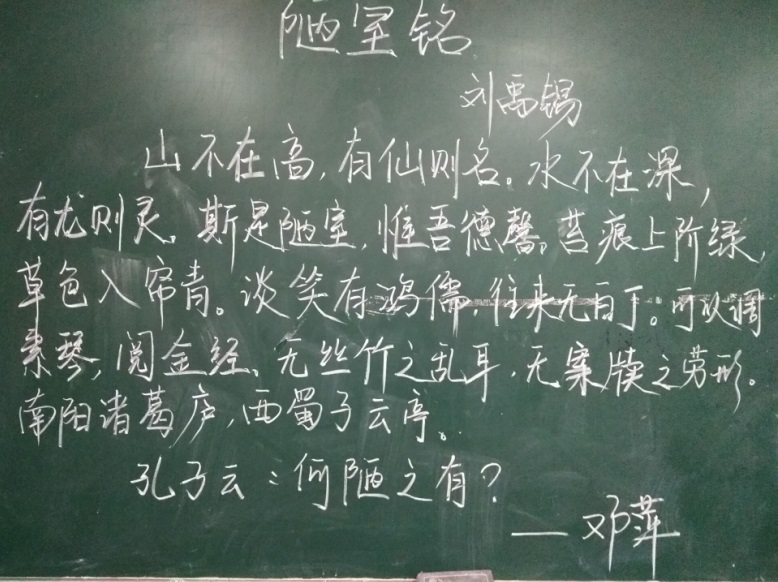 陋室铭
刘禹锡
山不在高,有仙则名。水不在深,
有龙则灵。斯是陋室,惟吾德馨。苔痕上阶绿,
草色入帘青。谈笑有鸿儒,往来无白丁。可以调
素琴,阅金经、无丝竹之乱耳,无案牍之劳形。
南阳诸葛庐,西蜀子云亭。
孔子云:何陋之有?
——邓萍